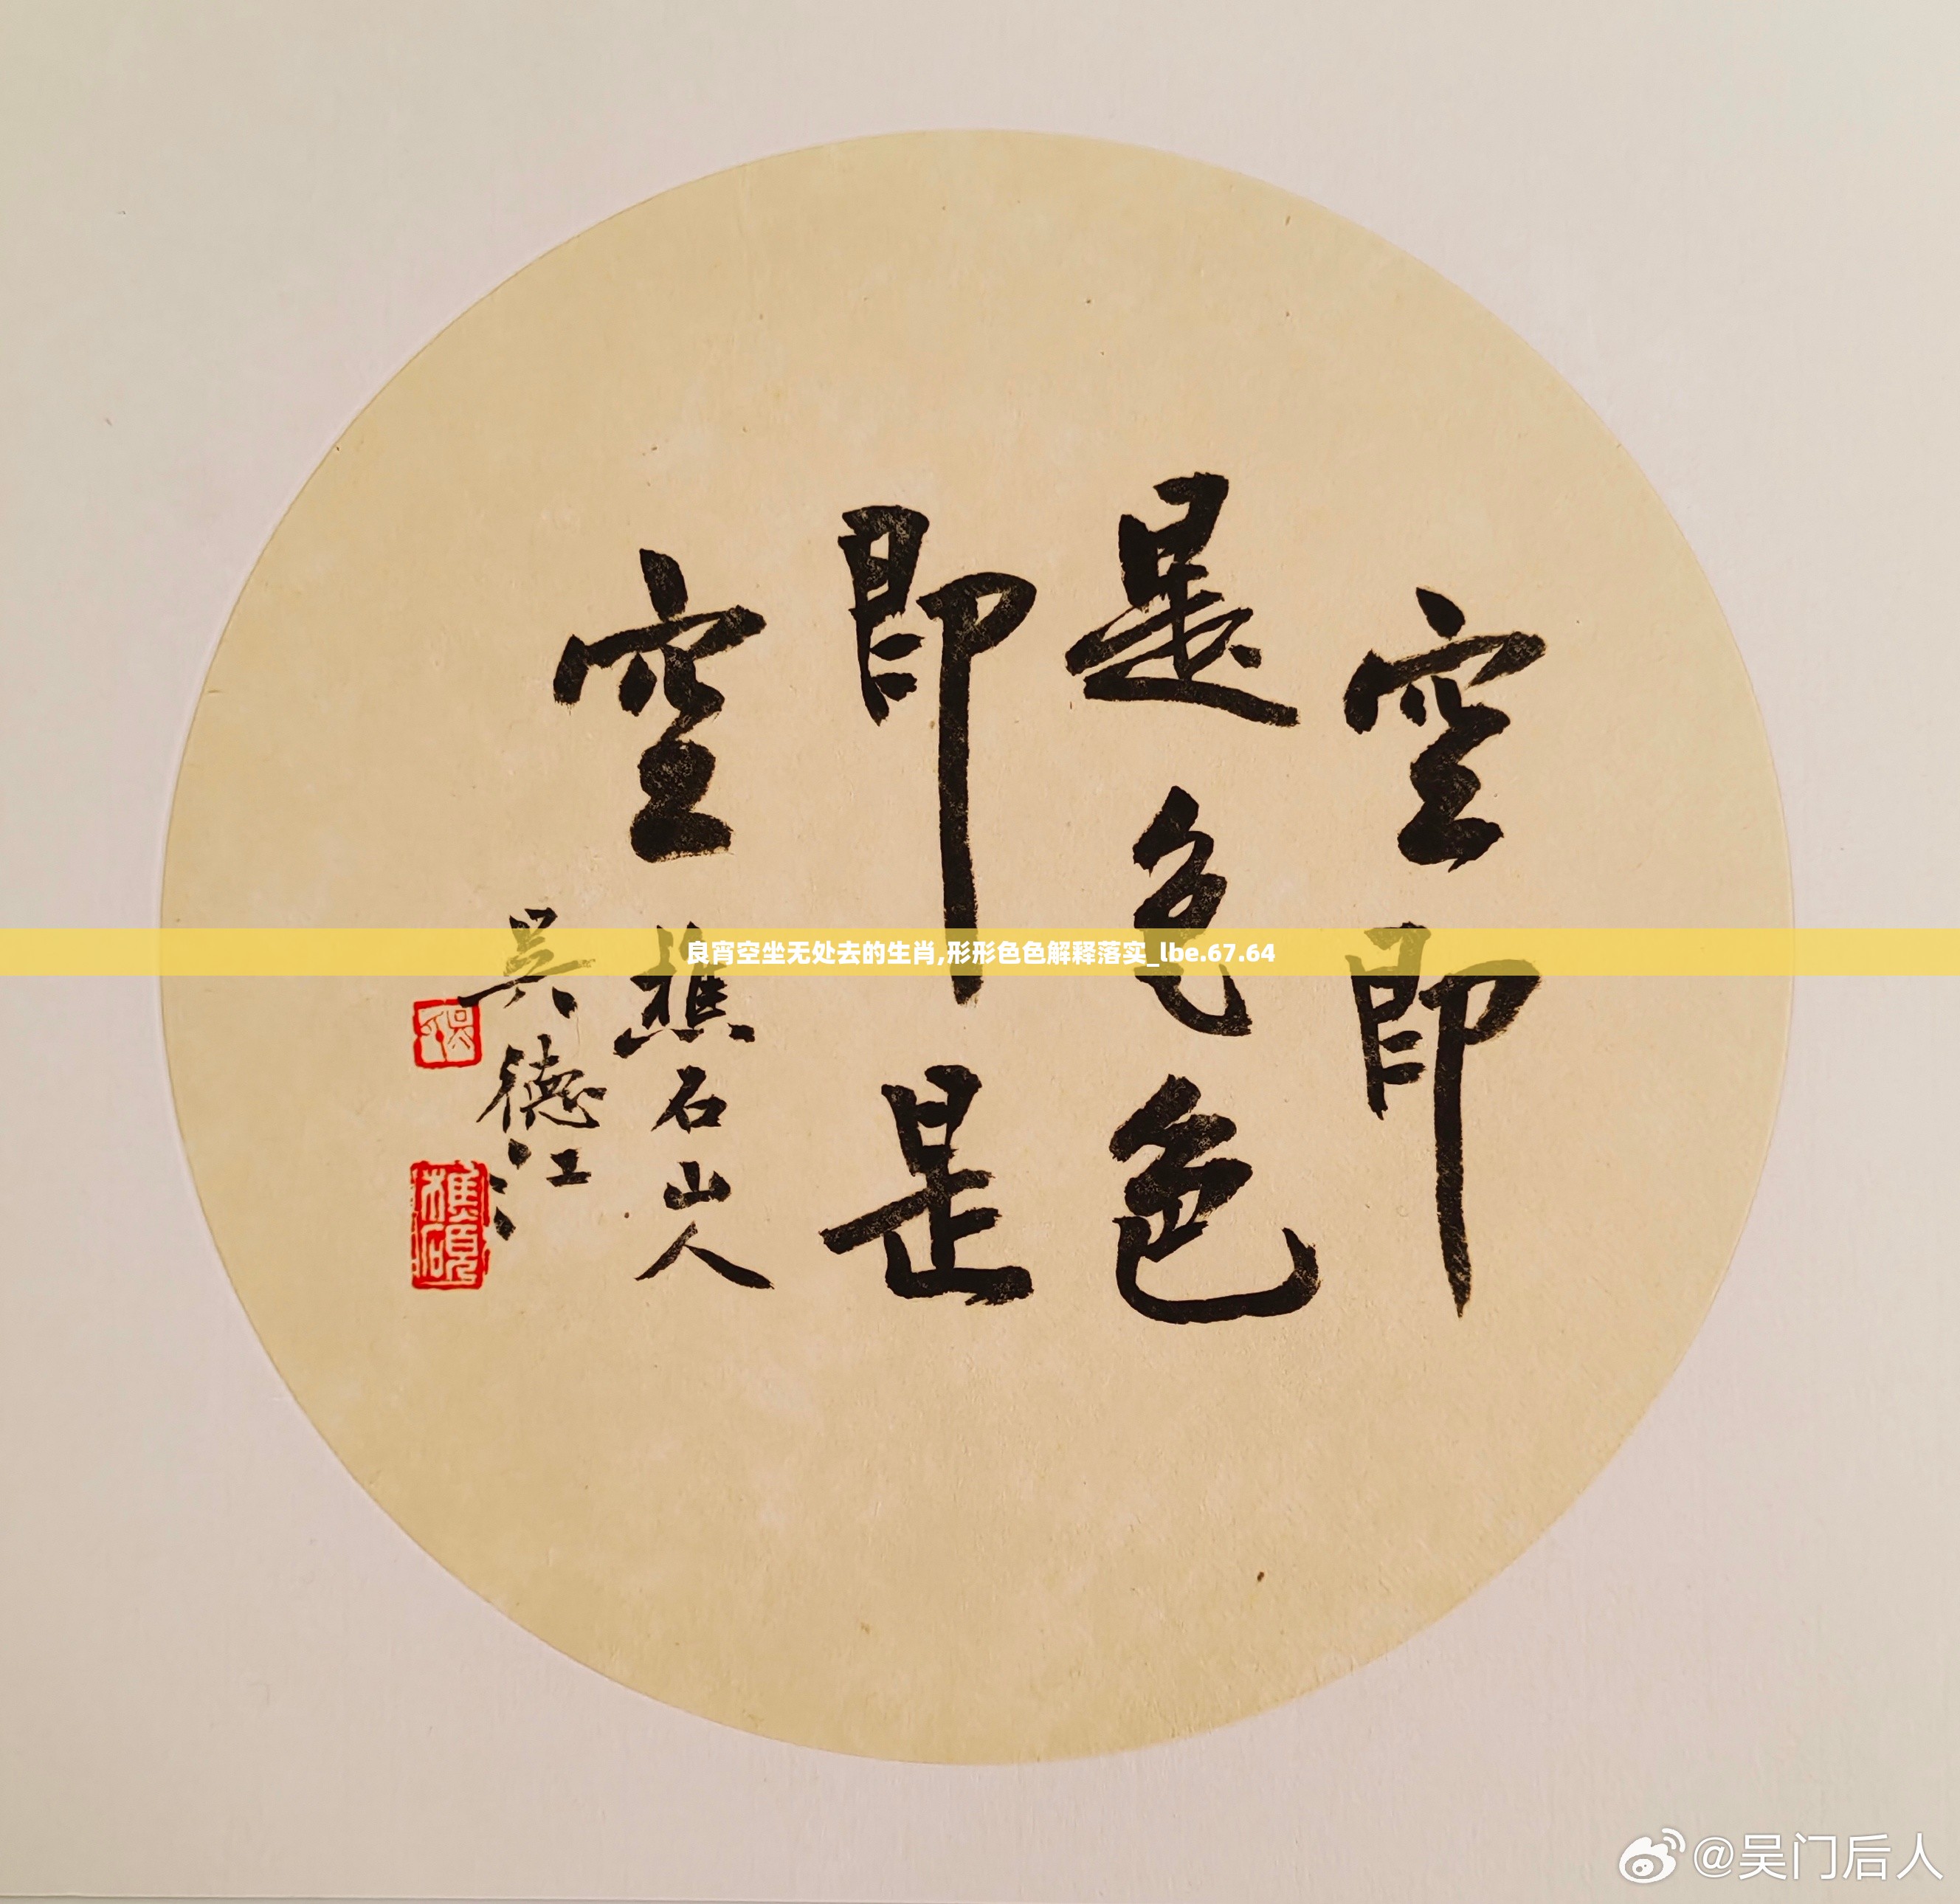 空即
是色色
即是
空
樵石山人
吴德江
良宵空坐无处去的生肖,形形色色解释落实_lbe.67.64
@吴门后人